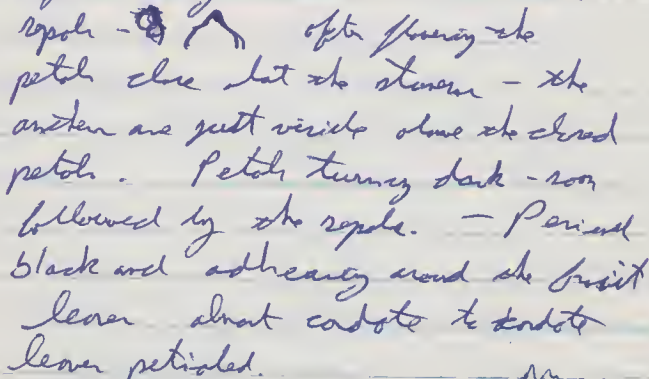 sepals - after flowering the
petals close but the stamens - the
anthers are just visible above the closed
petals. Petals turning dark - soon
followed by the sepals. - Perianth
black and adhearing around the fruit
leaves almost cordate to cordate
leaves petioled.